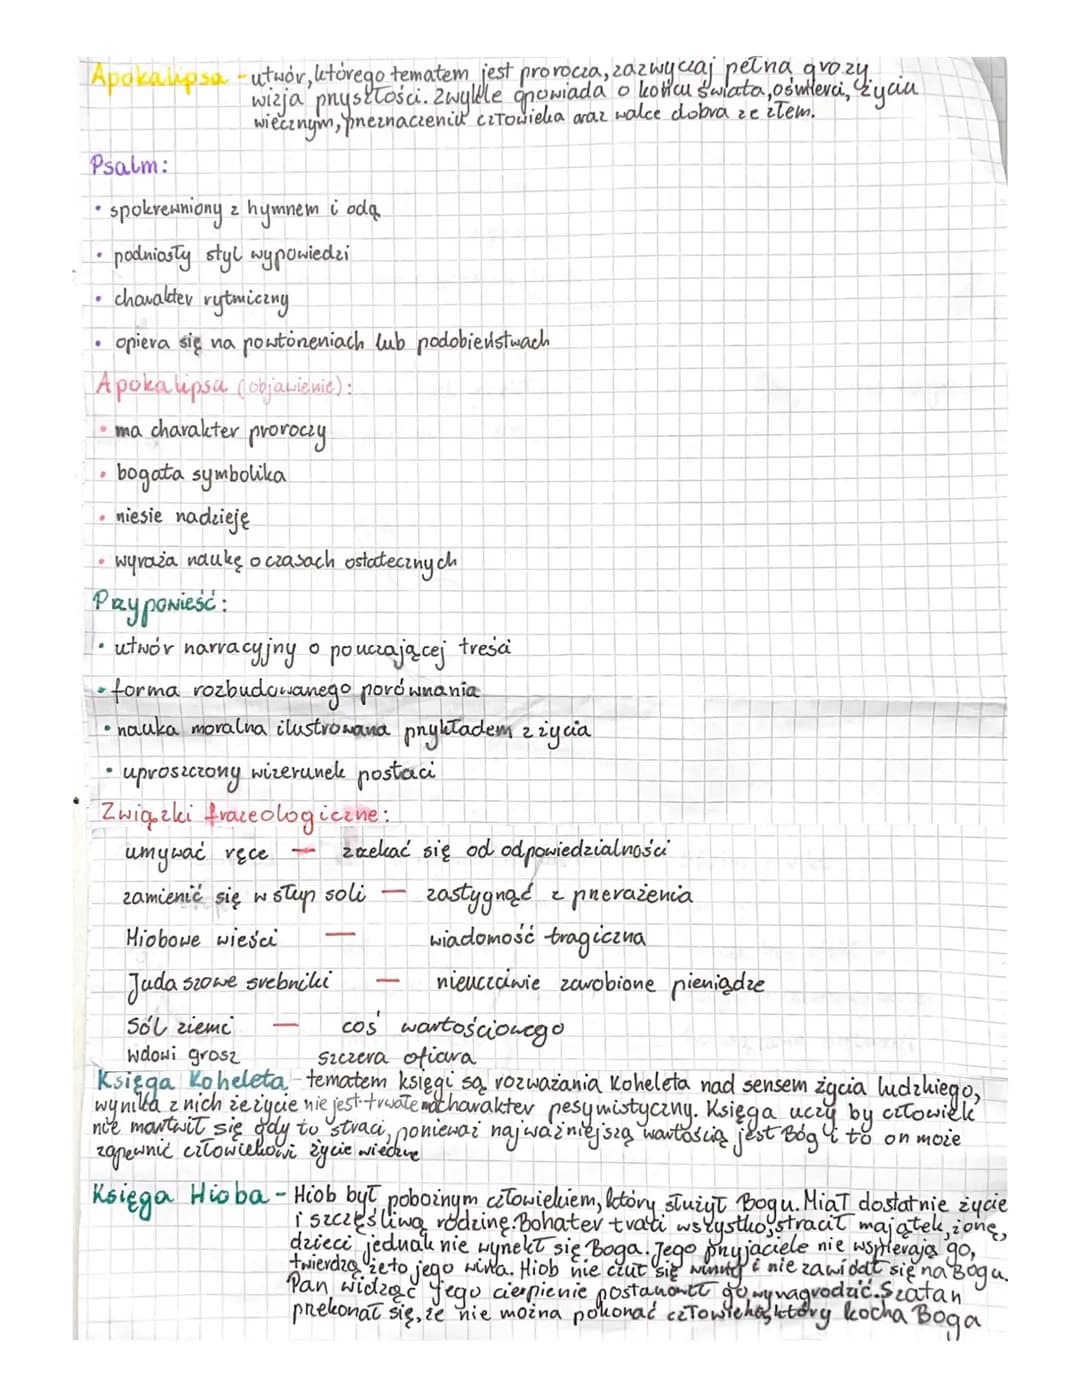 Apokalipsa - utwór, którego tematem jest prorocza, zazwyczaj pełna grozy
wizja przyszłości. Zwykle opowiada o końcu świata, o śmierci, życiu
wiecznym, przeznaczeniu człowieka oraz walce dobra ze złem.
Psalm:
• spokrewniony z hymnem i odą
• podniosły styl wypowiedzi
• charakter rytmiczny
• opiera się na powtórzeniach lub podobieństwach
Apokalipsa (objawienie):
• ma charakter proroczy
• bogata symbolika
• niesie nadzieję
• wyraża naukę o czasach ostatecznych
Przypowieść:
• utwór narracyjny o pouczającej treści
• forma rozbudowanego porównania
• nauka moralna ilustrowana przykładem z życia
• uproszczony wizerunek postaci
Związki frazeologiczne:
umywać ręce — zrzekać się od odpowiedzialności
zamienić się w słup soli — zastygnąć z przerażenia
Hiobowe wieści — wiadomość tragiczna
Judaszowe srebniki — nieuczciwie zarobione pieniądze
Sól ziemi — coś wartościowego
Wdowi grosz szczera ofiara
Księga Koheleta - tematem księgi są rozważania Koheleta nad sensem życia ludzkiego,
wynika z nich że życie nie jest trwałe ma charakter pesymistyczny. Księga uczy by człowiek
nie martwił się gdy to straci, ponieważ najważniejszą wartością jest Bóg i to on może
zapewnić człowiekowi życie wieczne
Księga Hioba - Hiob był pobożnym człowiekiem, który służył Bogu. Miał dostatnie życie
i szczęśliwą rodzinę. Bohater traci wszystko, stracił majątek, żonę,
dzieci jednak nie wyrzekł się Boga. Jego przyjaciele nie wspierają go,
twierdzą że to jego wina. Hiob nie czuł się winny i nie zawiódł się na Bogu.
Pan widząc jego cierpienie postanowił go wynagrodzić. Szatan
przekonał się, że nie można pokonać człowieka, który kocha Boga